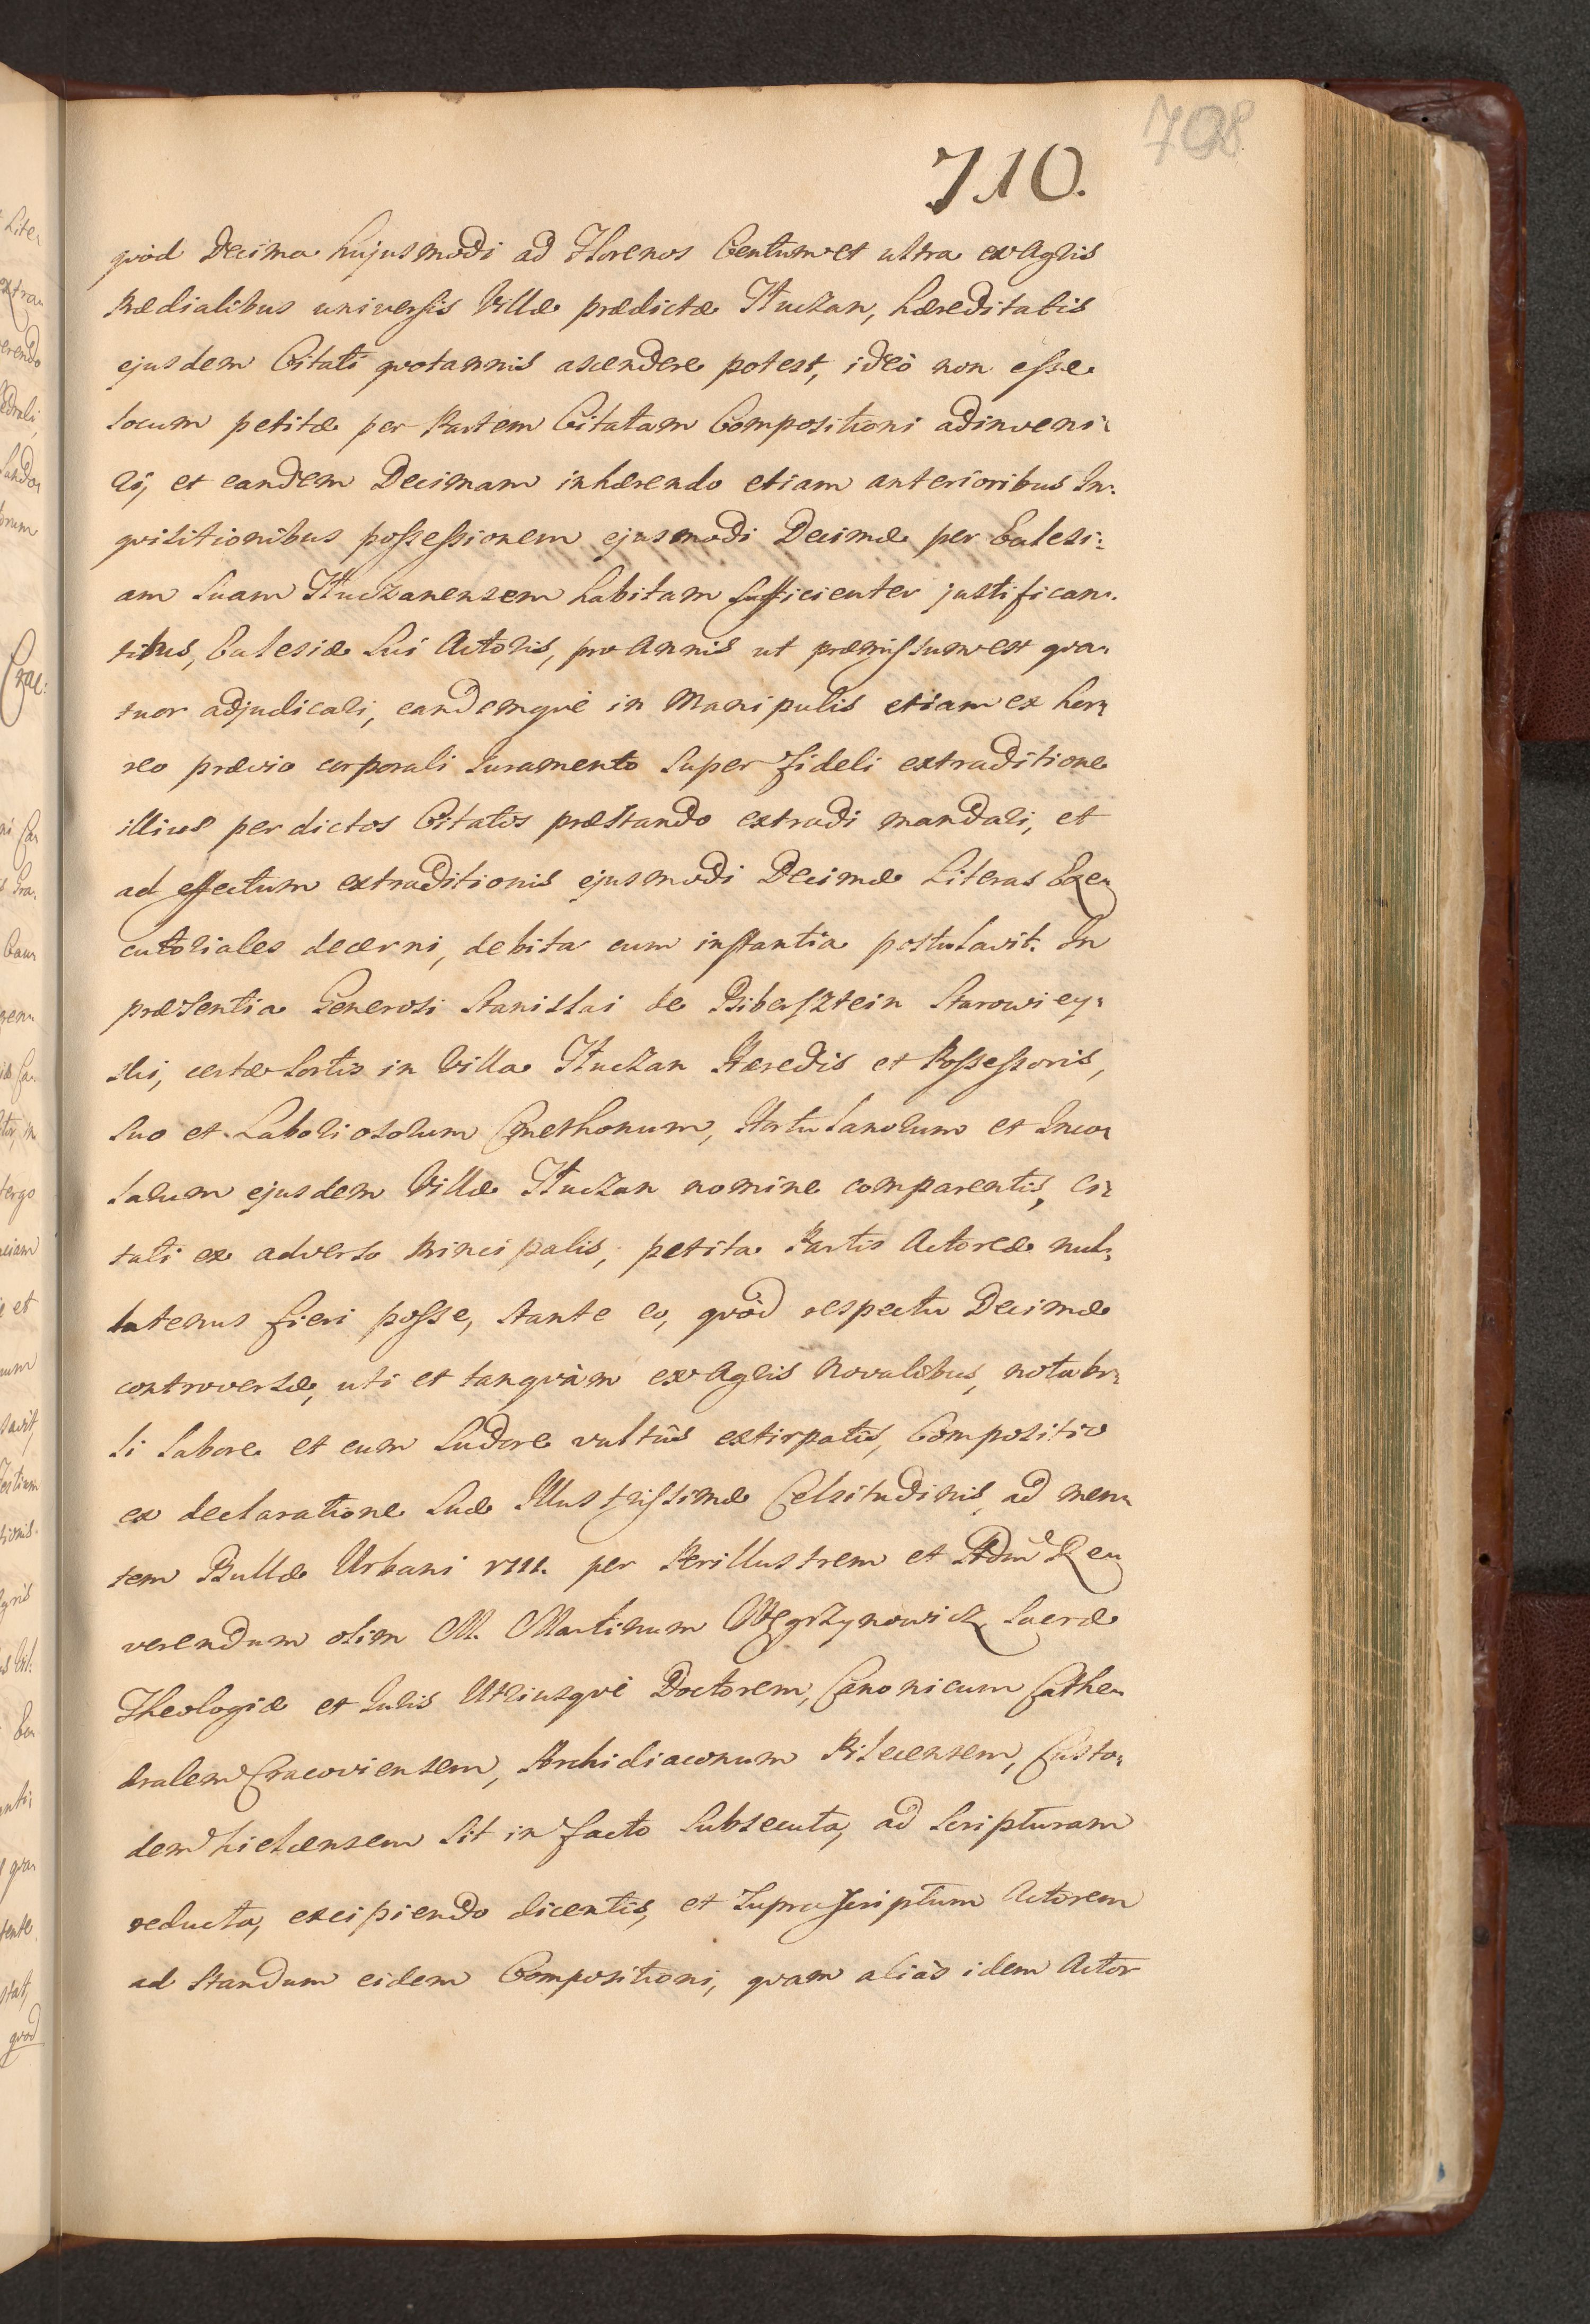 708
710.
quòd Decima hujusmodi ad Florenos Centum et ultra ex Agris
Prædialibus universis Villæ prædictæ Tłuczan, hæreditatis
ejusdem Citati quotannis ascendere potest, ideò non esse
locum petitæ per Partem Citatam Compositioni adinveni-
ri, et eandem Decimam inhærendo etiam anterioribus In-
quisitionibus possessionem ejusmodi Decimæ per Eclesi-
am suam Tłuczanensem habitam sufficienter justifican-
tibus, Eclesiæ sui Actoris, pro Annis ut præmissum est qua-
tuor adjudicari, eandemquè in Manipulis etiam ex hor-
reo prævio corporali Juramento super fideli extraditione
illius per dictos Citatos præstando extradi mandari, et
ad effectum extraditionis ejusmodi Decimæ Literas Exe-
cutoriales decerni, debita cum instantia postulavit. In
præsentia Generosi Stanislai de Bibersztein Starowiey-
ski, certæ Sortis in Villa Tłuczan Hæredis et Possessoris,
suo et Laboriosorum Cmethonum, Hortulanorum et Inco-
larum ejusdem Villæ Tłuczan nomine comparentis, Ci-
tati ex adverso Principalis, petita Partis Actoreæ nul-
latenus fieri posse, stante eo, quòd respectu Decimæ
controversæ, uti et tanquàm ex Agris Novalibus, notabi-
li labore et cum sudore vultûs extirpatis, Compositio
ex declaratione Suæ Illustrissimæ Celsitudinis ad men-
tem Bullæ Urbani VIII. per Perillustrem et Admo Re-
verendum olim M. Martinum Węgrzynowicz Sacræ
Theologiæ et Juris Utriusquè Doctorem, Canonicum Cathe-
dralem Cracoviensem, Archidiaconum Pilecensem, Custo-
dem Kielcensem sit in facto subsecuta, ad Scripturam
reducta, excipiendo dicentis, et suprascriptum Actorem
ad standum eidem Compositioni, quam aliàs idem Actor